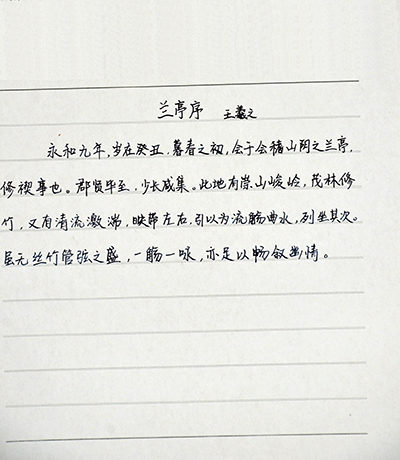 兰亭序 王羲之
永和九年,岁在癸丑.暮春之初,会于会稽山阴之兰亭,
修禊事也。群贤毕至.少长咸集。此地有崇山峻岭,茂林修
竹,又有清流激湍,映带左右,引以为流觞曲水,列坐其次。
虽无丝竹管弦之盛,一觞一咏,亦足以畅叙幽情。